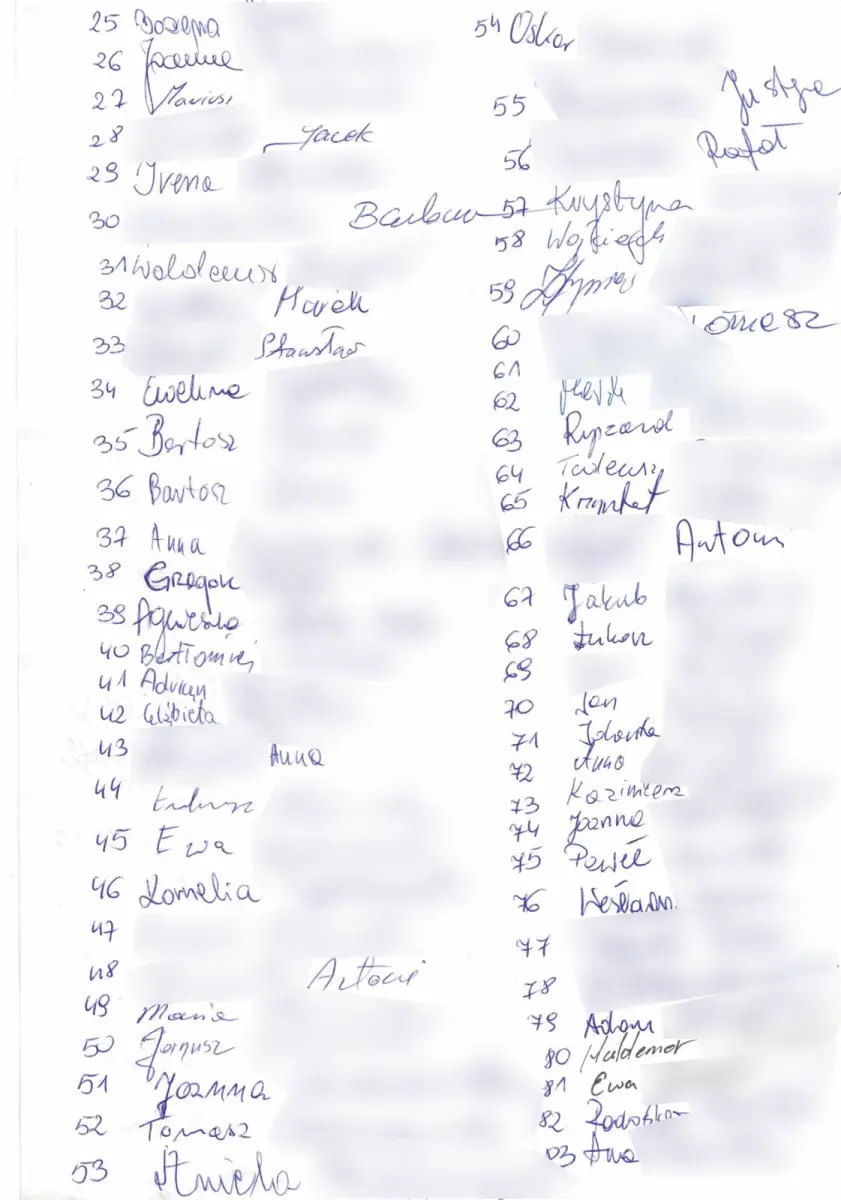 25 Bożena
26 Joanna
27 Mariusz
28 Jacek
29 Irena
30 Barbara
31 Waldemar
32 Marek
33 Stanisław
34 Ewelina
35 Bartosz
36 Bartosz
37 Anna
38 Grzegorz
39 Agnieszka
40 Bartłomiej
41 Adrian
42 Elżbieta
43 Anna
44 Łukasz
45 Ewa
46 Kornelia
47
48 Antoni
49 Maria
50 Janusz
51 Joanna
52 Tomasz
53
54 Oskar
55 Justyna
56 Rafał
57 Krystyna
58 Wojciech
59
60 Tomasz
61
62
63 Ryszard
64 Tadeusz
65 Krzysztof
66 Antoni
67 Jakub
68 Łukasz
69
70 Jan
71 Jolanta
72 Anna
73 Kazimierz
74 Joanna
75 Paweł
76 Wiesław
77
78
79 Adam
80 Waldemar
81 Ewa
82 Radosław
83 Anna